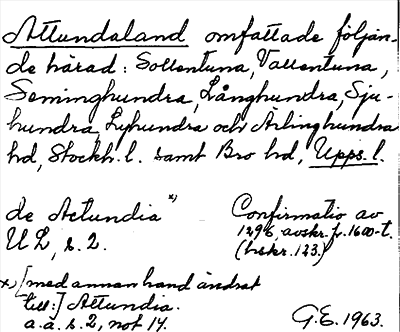 Attundaland omfattade följan-
de härad: Sollentuna, Vallentuna,
Seminghundra, Långhundra, Sju-
hundra, Lyhundra och Ärlinghundra
hd, Stockh. l. samt Bro hd, Upps. l.
de Actundia x) Confirmatio av
UL, s. 2. 1296, avskr. fr. 1600-t.
(hskr. 123.)
x) [med annan hand ändrat
till:] Attundia.
a.a. s. 2, not 14. G.E. 1963.